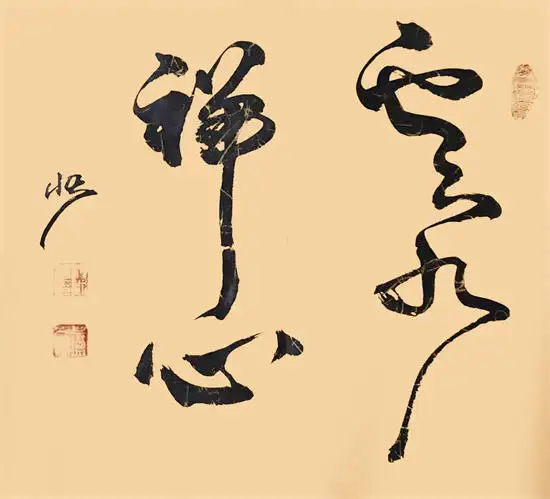 雲水
禪心